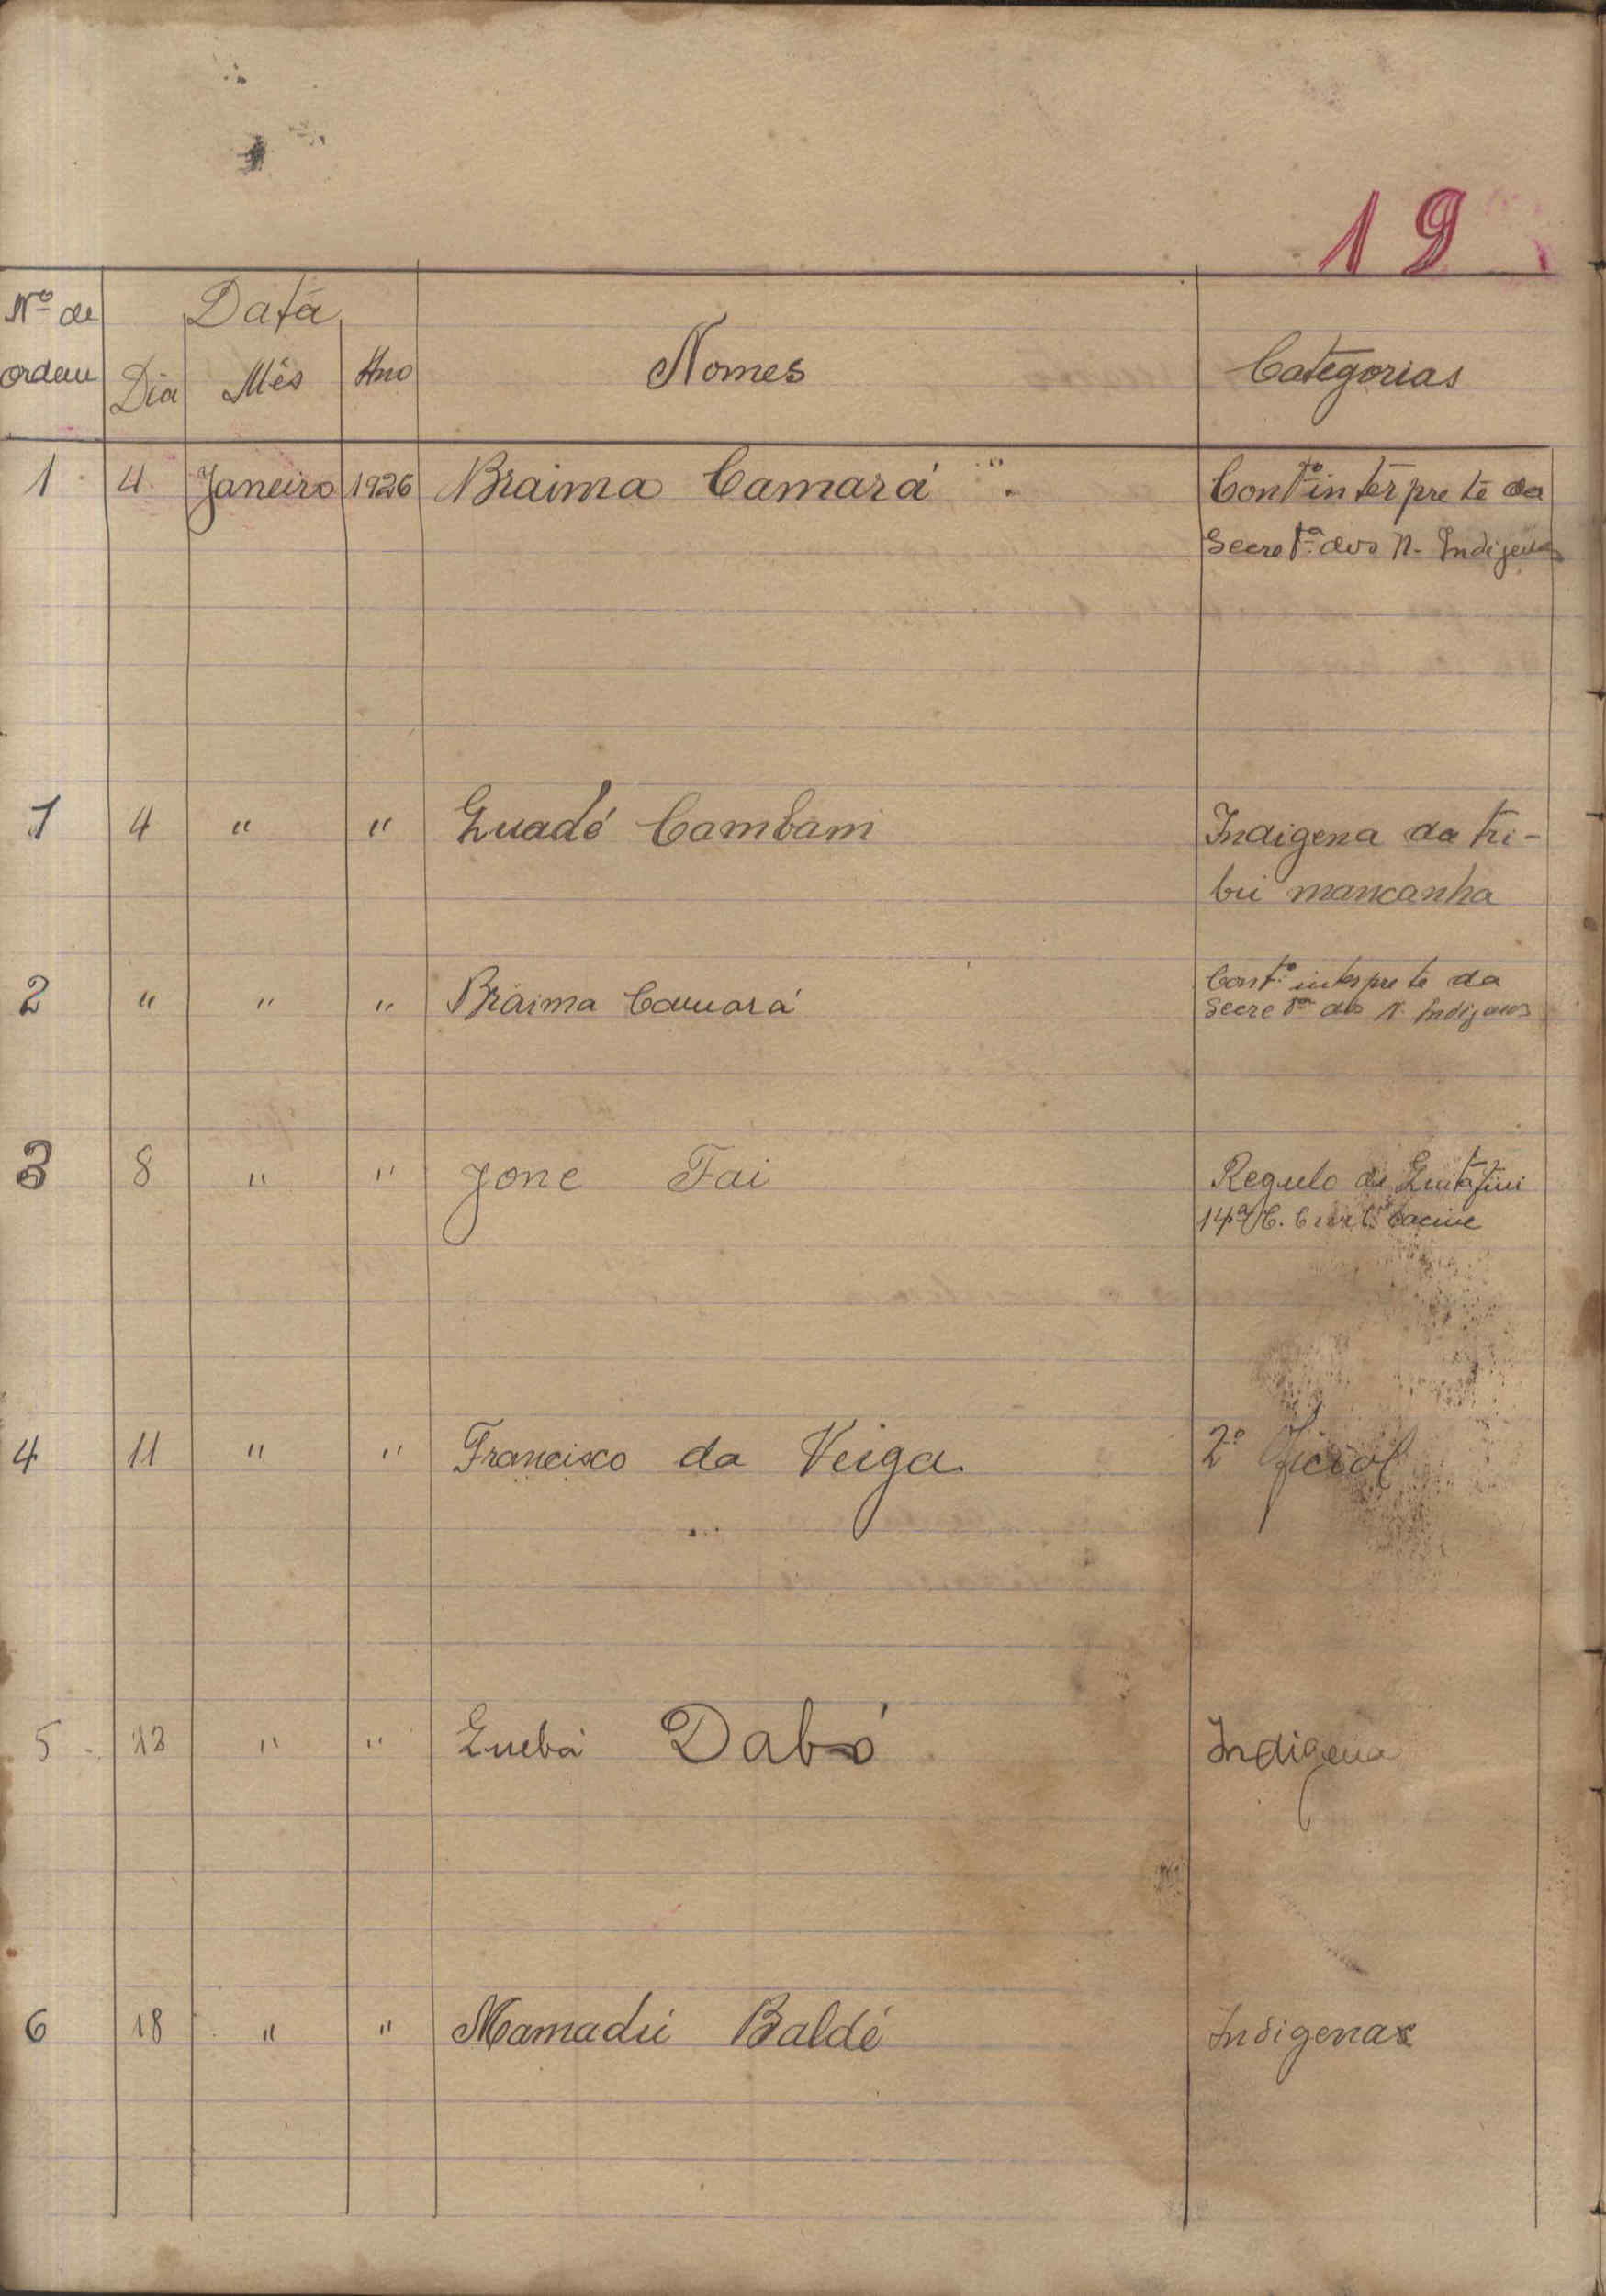 19
Nº de ordem Data Dia Mês Ano Nomes Categorias
1 4 Janeiro 1926 Braima Camará Contº interprete da
Secretª dos N. Indigenas
1 4 " " Quadé Cambam Indigena da tri-
bu mancanha
2 " " " Braima Camará Contº interprete da
Secretª dos N. Indigenas
3 8 " " Jone Fai Regulo de Quitafini
14ª/C. Cacine
4 11 " " Francisco da Veiga 2º Oficial
5 " " Quebá Dabó Indigena
6 18 " " Mamadú Baldé Indigena